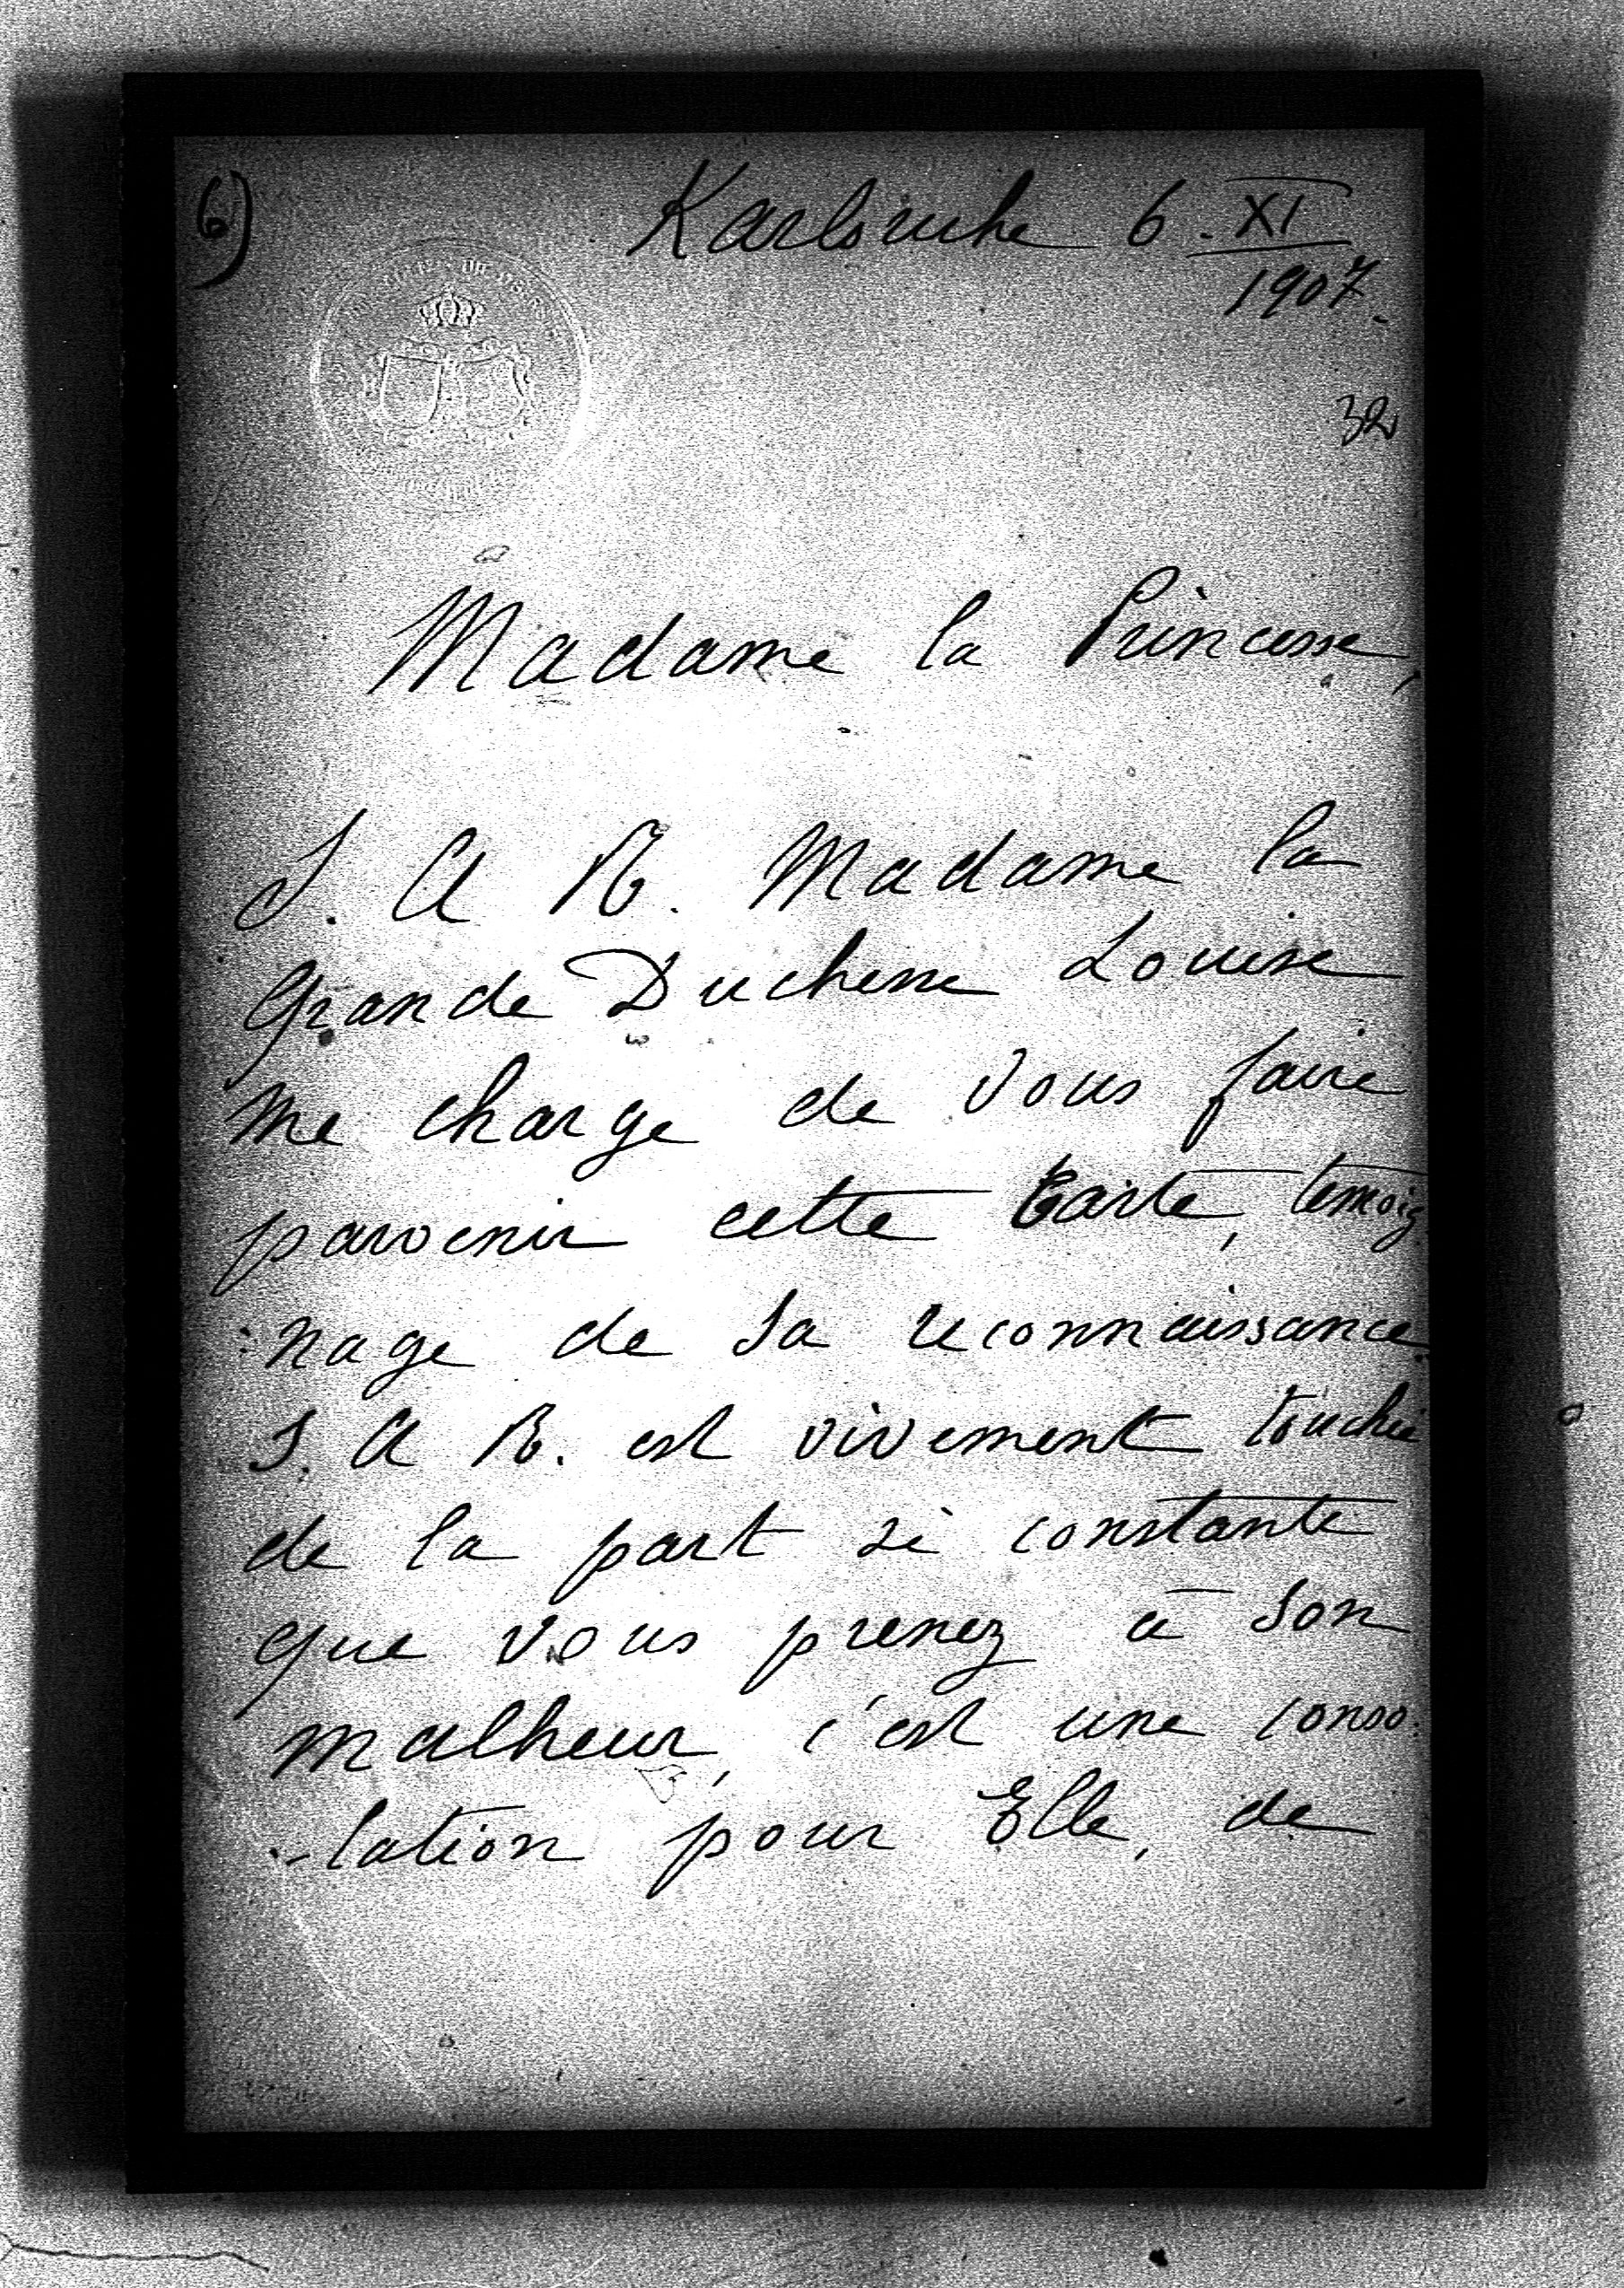 6)
Karlsruhe 6. XI
1907.
32
Madame la Princesse,
S. A R. Madame la
Grande Duchesse Louise
me charge de vous faire
parvenir cette Carte, temoig
:nage de sa reconnaissance.
S. A R. est vivement touchée
de la part si constante
que vous prenez à son
malheur, c'est une conso:
-lation pour Elle, de